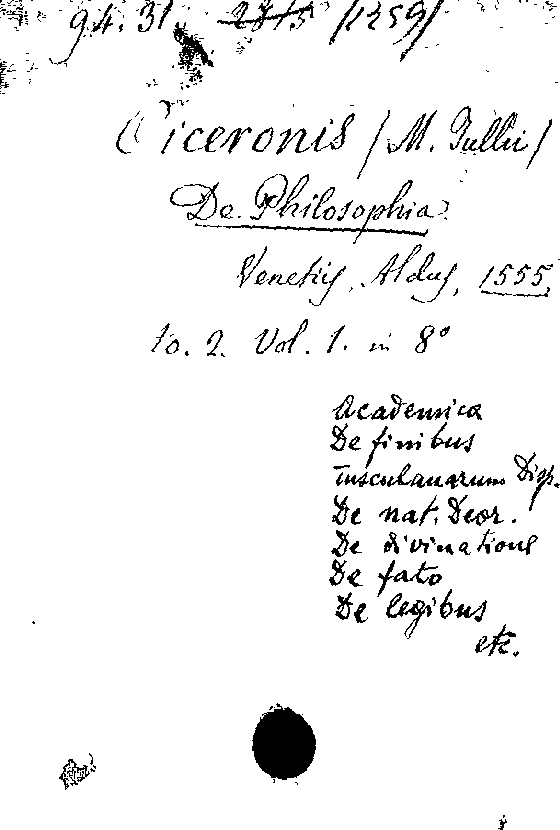 94.31. 2815 /1259/
Ciceronis / M. Tullii /
De Philosophia.
Venetijs, Aldus, 1555.
to. 2. Vol. 1. in 8°
Academica
De finibus
Tusculanarum Disp.
De nat. Deor.
De divinatione
De fato
De legibus
etc.